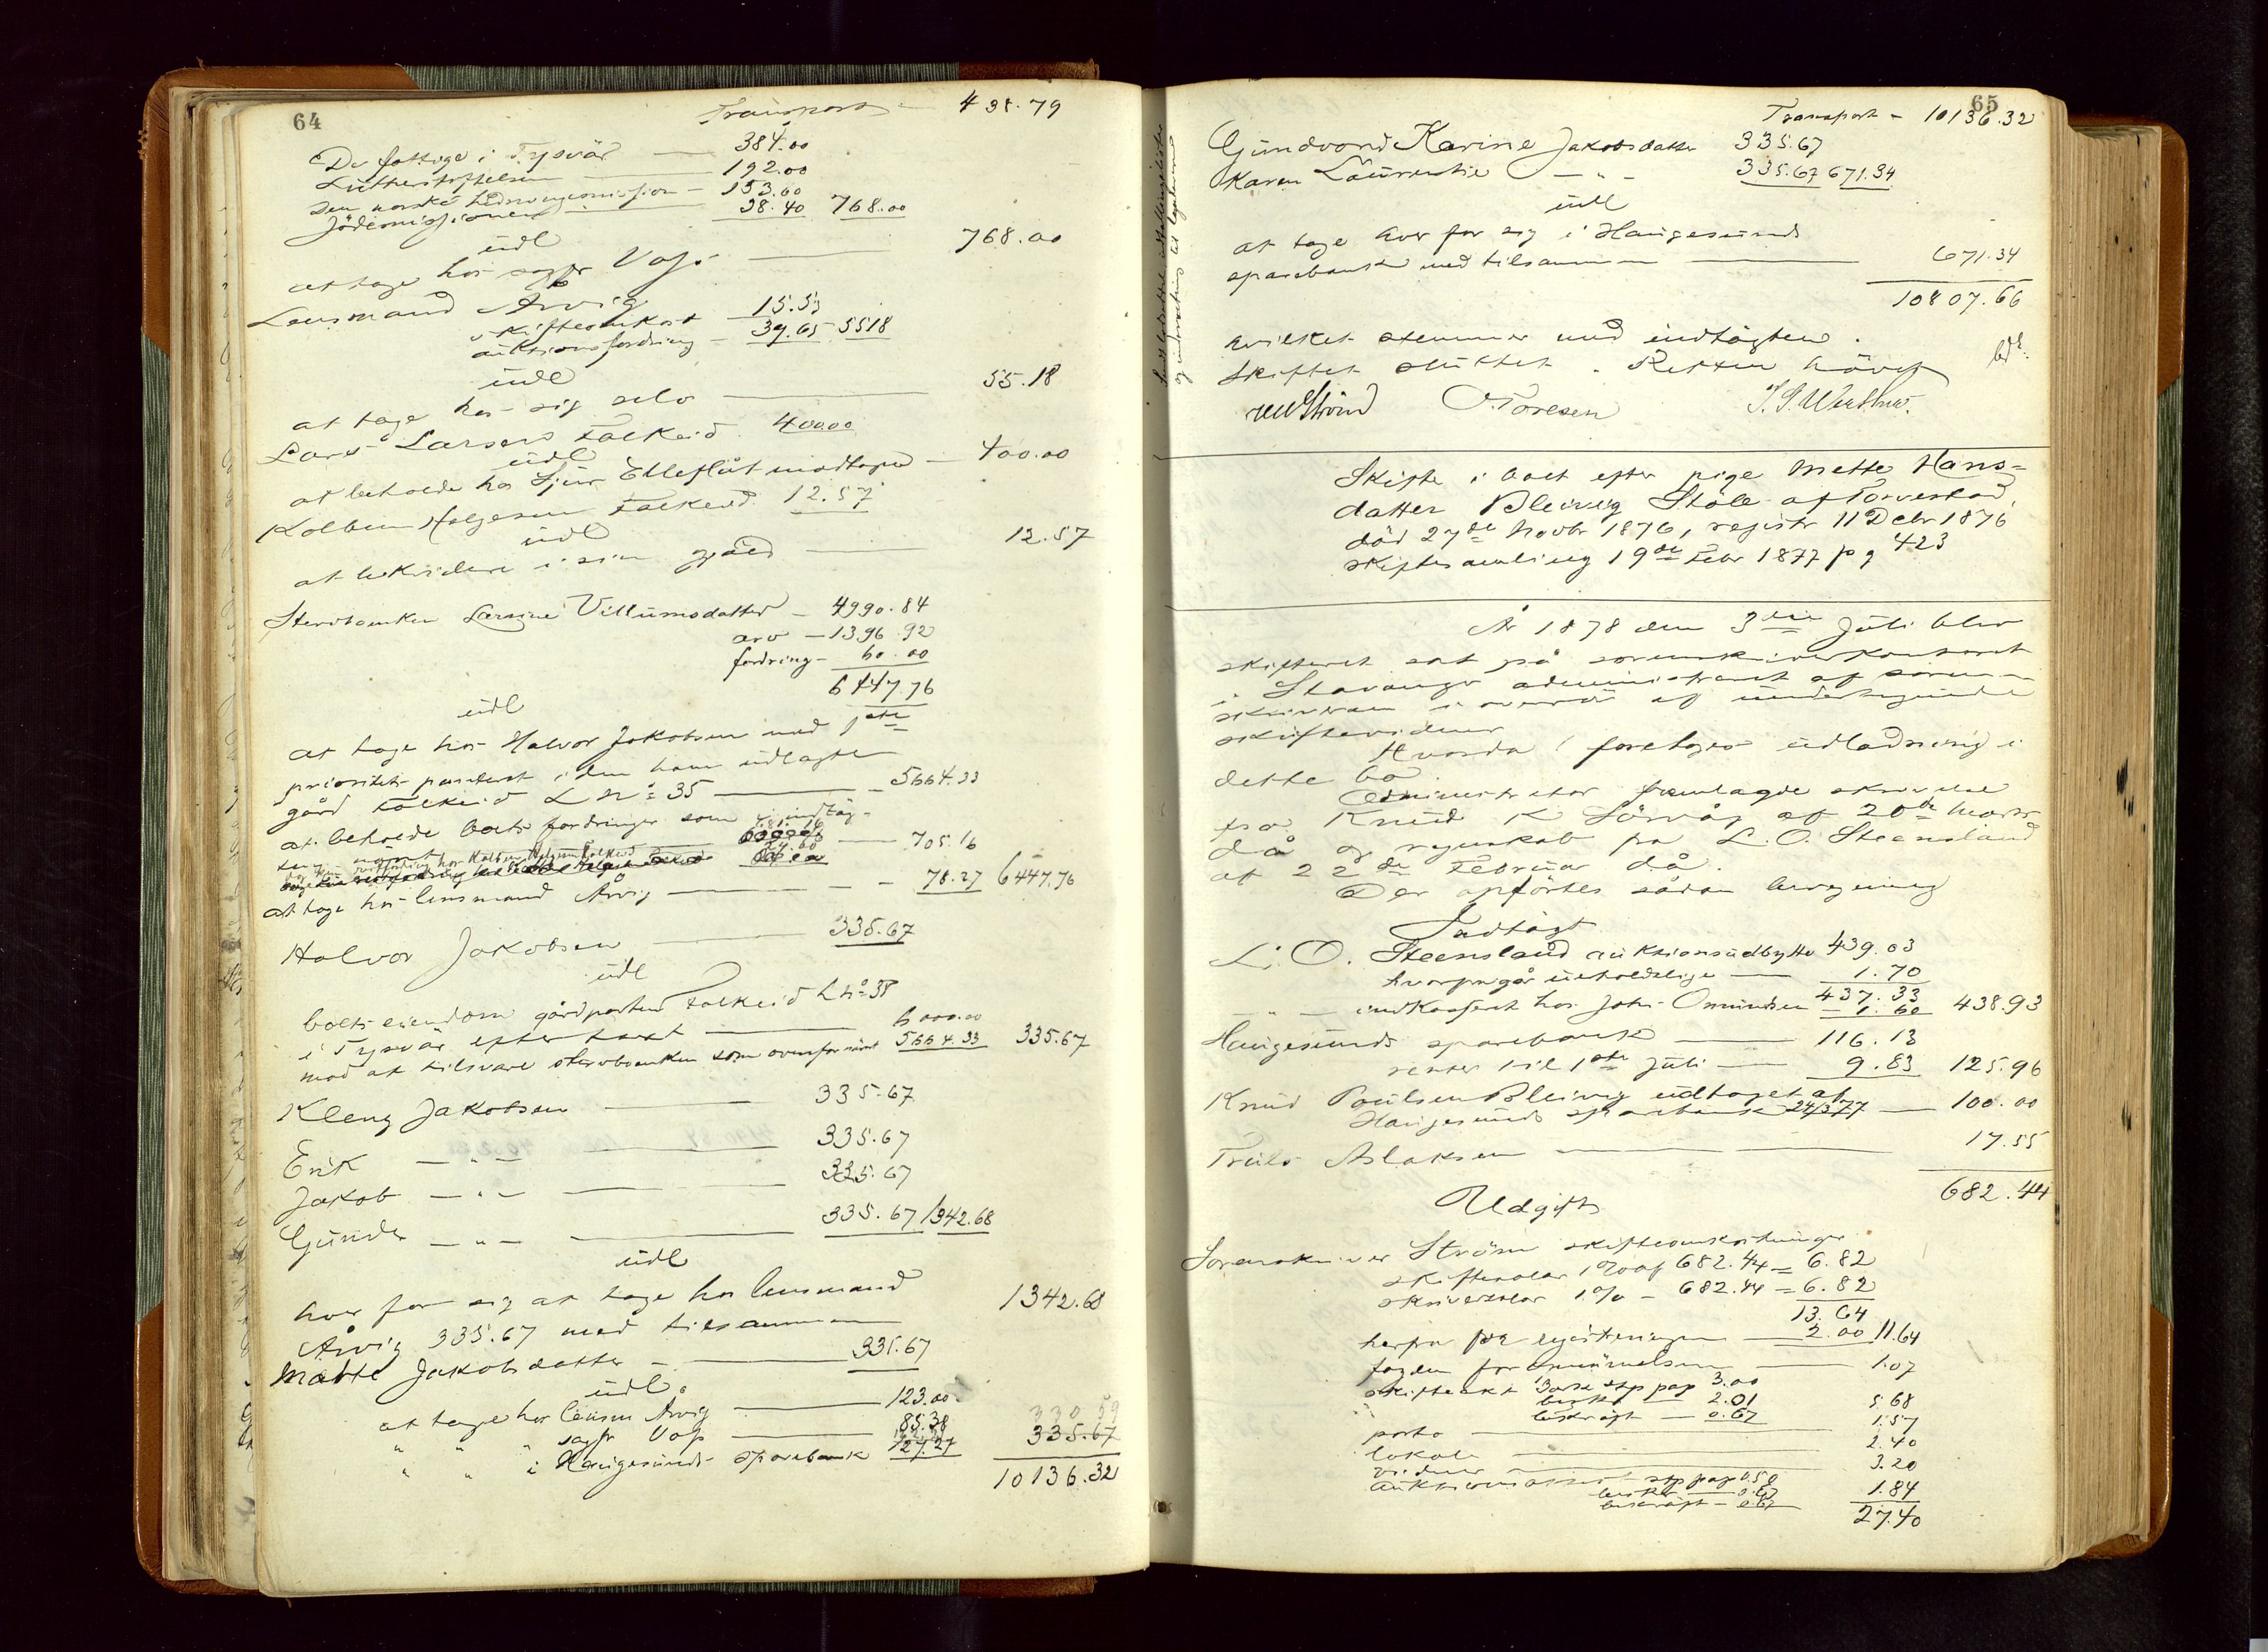 64
Transport - 438.79
De fattige i Tysvär — 384.00
Lutherstiftelsen — 192.00
Den norske hedningemission - 153.60
Jödemissionen — 38.40 768.00
üdl
at tage hos sagfr Voss — 768.00
Lensmand Årvig
skifteomkost 15.53
auktionsfordring - 39.65 55.18
üdl
at tage hos sig selv — 55.18
Lars Larsens Falkeid 400.00
üdl
at beholde hos Sjur Elleflåt modtaged — 400.00
Kolbein Helgesen Falkeid 12.57
üdl
at likvidere i sin gjäld — 12.57
Stervboenken Larsine Villumsdatter - 4990.84
arv - 1396.92
fordring - 60.00
6447.76
üdl
at tage hos Halvor Jakobsen med 1ste
prioritets panteret i den ham üdlagte
gård Falkeid L No 35 — 5664.33
at beholde boets fordringer som i indtäg-
705.16
at tage hos lensmand Årvig — 78.27 6447.76
Halvor Jakobsen — 335.67
üdl
boets eiendom gårdparten Falkeid L No 35
i Tysvär efter taxt — 6000.00
mod at tilsvare stervboenken som ovenfor nävnt 5664.33 335.67
Kleng Jakobsen — 335.67
Erik — " — 335.67
Jakob — " — 335.67
Gunder — " — 335.67 1342.68
üdl
hver for sig at tage hos lensmand
Årvig 335.67 med tilsammen 1342.68
Mette Jakobsdatter — 335.67
üdl
at tage hos lensm Årvig — 123.00
" " " sagfr Voss — 85.38 330 59
" " i Haugesunds sparebank 127.27 335.67
10136.32
65
Transport - 10136.32
Gundvord Karine Jakobsdatter 335.67
Karen Laurentie — " — 335.67 671.34
üdl
at tage hver for sig i Haugesunds
sparebank med tilsammen — 671.34
10807.66
hvilket stemmer med indtägten.
Skiftet sluttet. Retten hävet
O. Toresen
Skifte i boet efter pige Mette Hans-
datter Bleivig Stöle af Torvestad,
död 27de Novbr 1876, registr 11 Debr 1876
skiftesamling 19de Febr 1877 pg 423
År 1878 den 3die Juli blev
skifteret sat på sorenskriverkontoret
i Stavanger administreret af soren-
skriveren i overvär af undertegnede
skiftevidner
Hvorda foretoges üdlodning i
dette bo.
Administrator fremlagde skrivelse
fra Knud K Sörvåg af 20de Marts
då og regnskab fra L. O. Steensland
af 22de Februar då.
Der opförtes sådan beregning
Indtägt
L. O. Steensland auktionsudbytte 439.03
hvorfra går üerholdelige — 1.70
437.33
— " — indkasseret hos Johs Omundsen - 1.60 438.93
Haugesunds sparebank — 116.13
renter til 1ste Juli — 9.83 125.96
Knud Poulsen Bleivig üdtaget af
Haugesunds sparebank 24/3 77 — 100.00
Truls Aslaksen — 17.55
682.44
Udgift
Sorenskriver Ström skifteomkostninger
skiftesalær 1% af 682.44 = 6.82
skriversalær 1% - 682.44 = 6.82
13.64
herfra for registreringen — 2.00 11.64
fogden for Anmeldelsen — 1.07
skifteakt 3 ark stp pap 3.00
beskr 2.01
beskrift — 0.67 5.68
porto — 1.57
lokale — 2.40
vidner — 3.20
auktionsattest stp pap 0.50
beskr 0.67
beskrift — 0.67 1.84
27.40